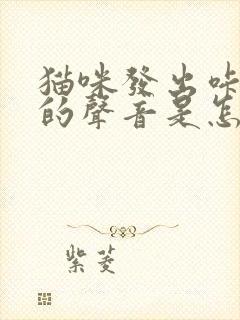 猫咪發出咔
的聲音是怎
紫菱